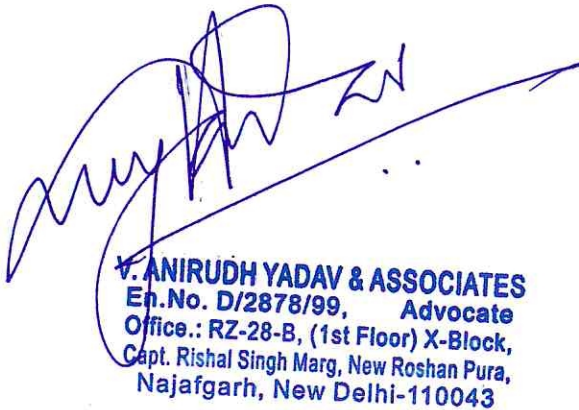 V. ANIRUDH YADAV & ASSOCIATES
En.No. D/2878/99, Advocate
Office.: RZ-28-B, (1st Floor) X-Block,
Capt. Rishal Singh Marg, New Roshan Pura,
Najafgarh, New Delhi-110043